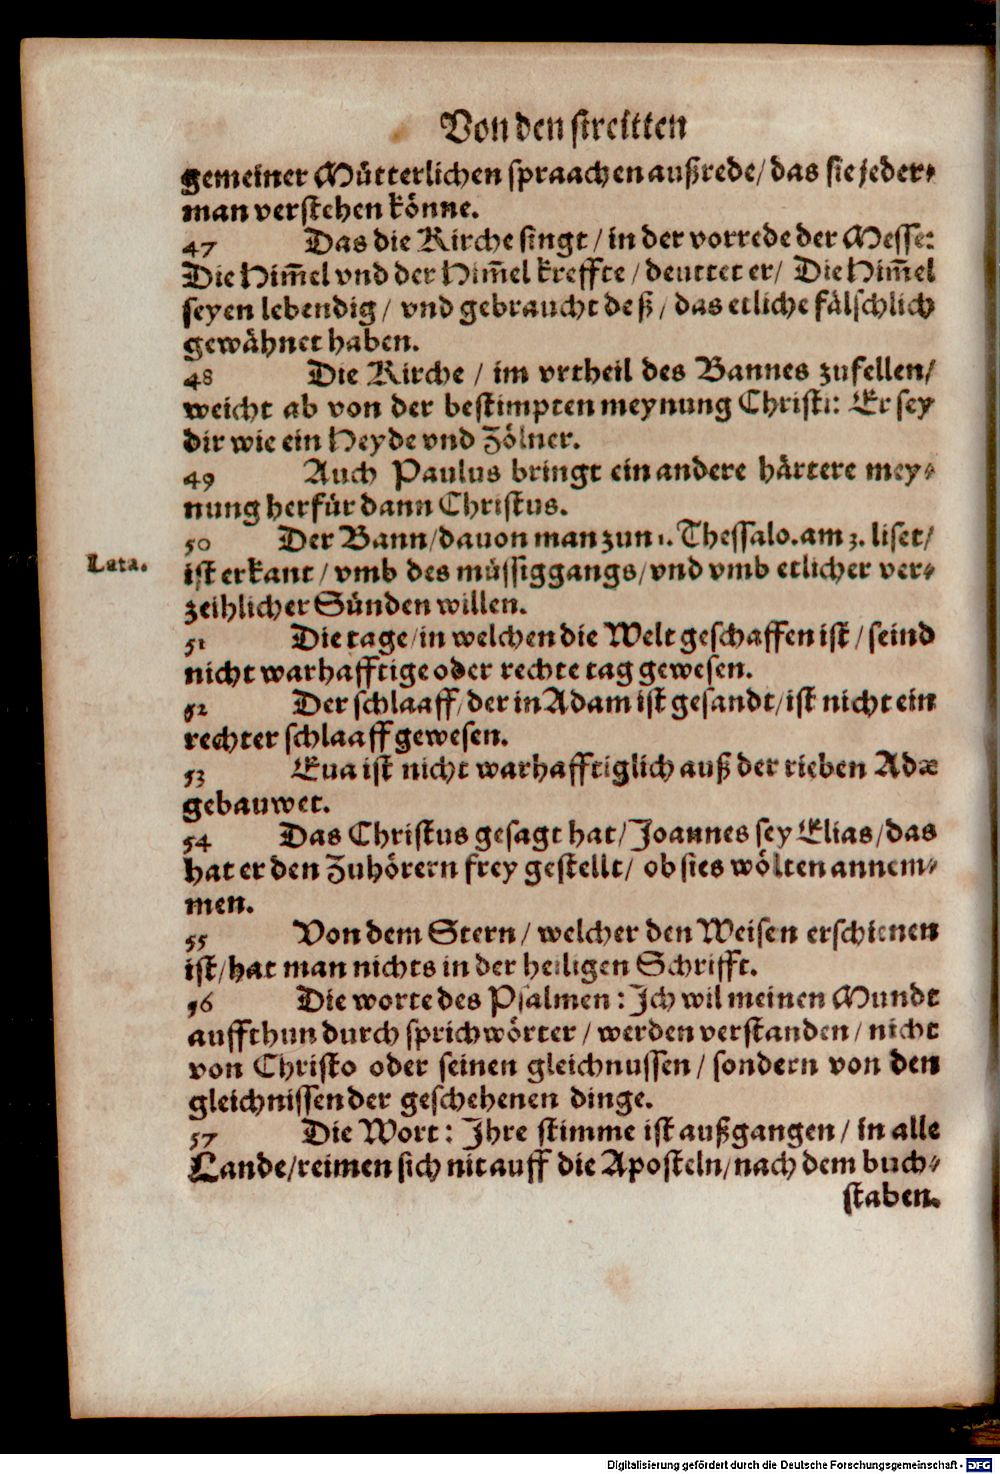 Von den streitten
gemeiner Mütterlichen spraachen außrede/ das sie jeder⸗
man verstehen könne.
47 Das die Kirche singt / in der vorrede der Messe:
Die Him̃el vnd der Him̃el kreffte / deuttet er/ Die Him̃el
seyen lebendig / vnd gebraucht deß / das etliche fälschlich
gewähnet haben.
48 Die Kirche / im vrtheil des Bannes zufellen/
weicht ab von der bestimpten meynung Christi: Er sey
dir wie ein Heyde vnd Zölner.
49 Auch Paulus bringt ein andere härtere mey⸗
nung herfür dann Christus.
50 Der Bann/dauon man zun 1. Thessalo. am 3. liset/
Lata.
ist erkant / vmb des müssiggangs/ vnd vmb etlicher ver⸗
zeihlicher Sünden willen.
51 Die tage/in welchen die Welt geschaffen ist / seind
nicht warhafftige oder rechte tag gewesen.
52 Der schlaaff/der in Adam ist gesandt/ist nicht ein
rechter schlaaff gewesen.
53 Eua ist nicht warhafftiglich auß der rieben Adæ
gebauwet.
54 Das Christus gesagt hat/ Joannes sey Elias/das
hat er den Zuhörern frey gestellt/ ob sies wölten annem⸗
men.
55 Von dem Stern / welcher den Weisen erschienen
ist/hat man nichts in der heiligen Schrifft.
56 Die worte des Psalmen : Ich wil meinen Mundt
auffthun durch sprichwörter / werden verstanden / nicht
von Christo oder seinen gleichnussen / sondern von den
gleichnissen der geschehenen dinge.
57 Die Wort : Ihre stimme ist außgangen / in alle
Lande/reimen sich nit auff die Aposteln/nach dem buch⸗
staben.
Digitalisierung gefördert durch die Deutsche Forschungsgemeinschaft - DFG